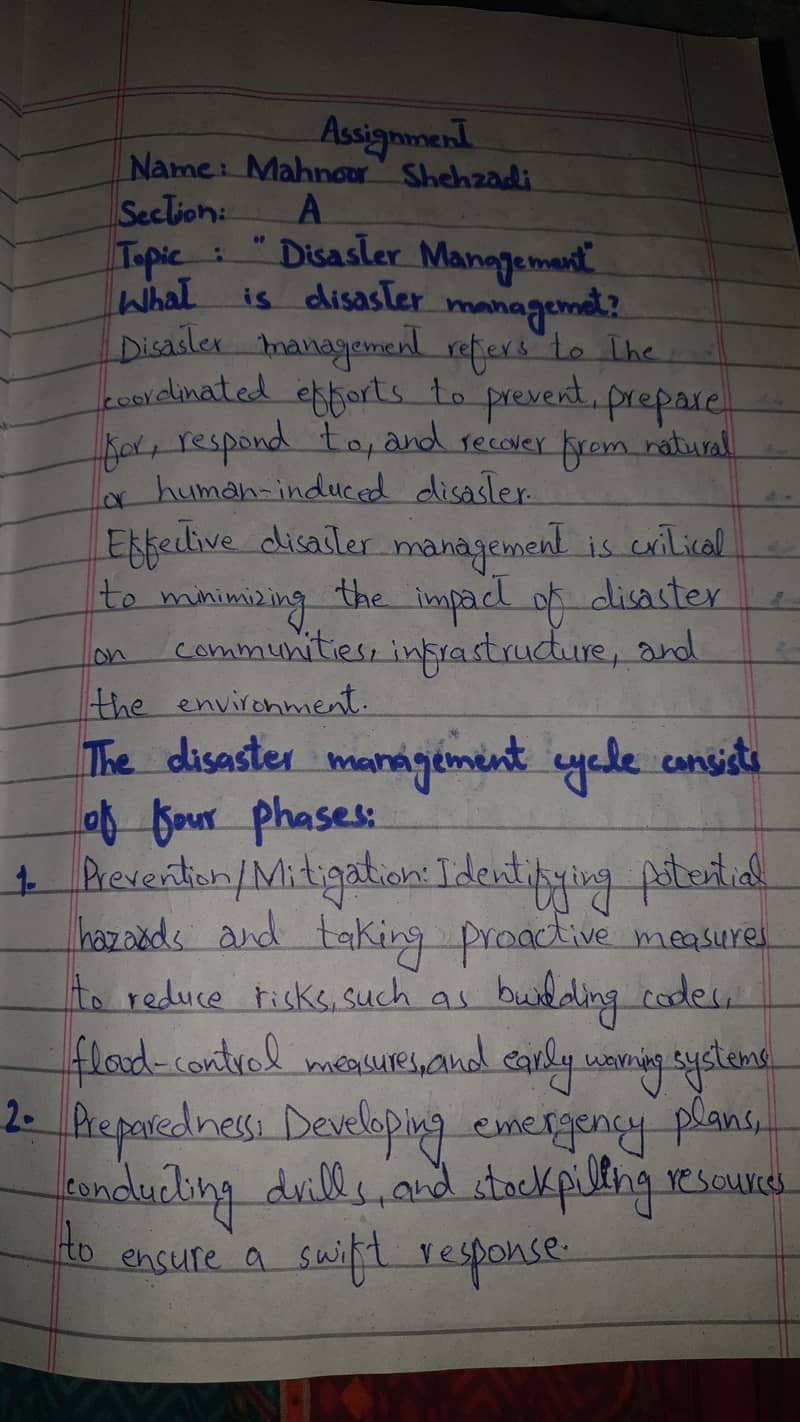 Assignment
Name: Mahnoor Shehzadi
Section: A
Topic : "Disaster Management"
What is disaster managemet?
Disaster management refers to the
coordinated efforts to prevent, prepare
for, respond to, and recover from natural
or human-induced disaster.
Effective disaster management is critical
to minimizing the impact of disaster
on communities, infrastructure, and
the environment.
The disaster management cycle consists
of four phases:
1. Prevention/Mitigation: Identifying potential
hazards and taking proactive measures
to reduce risks, such as building codes,
flood-control measures, and early warning systems
2. Preparedness: Developing emergency plans,
conducting drills, and stockpiling resources
to ensure a swift response.